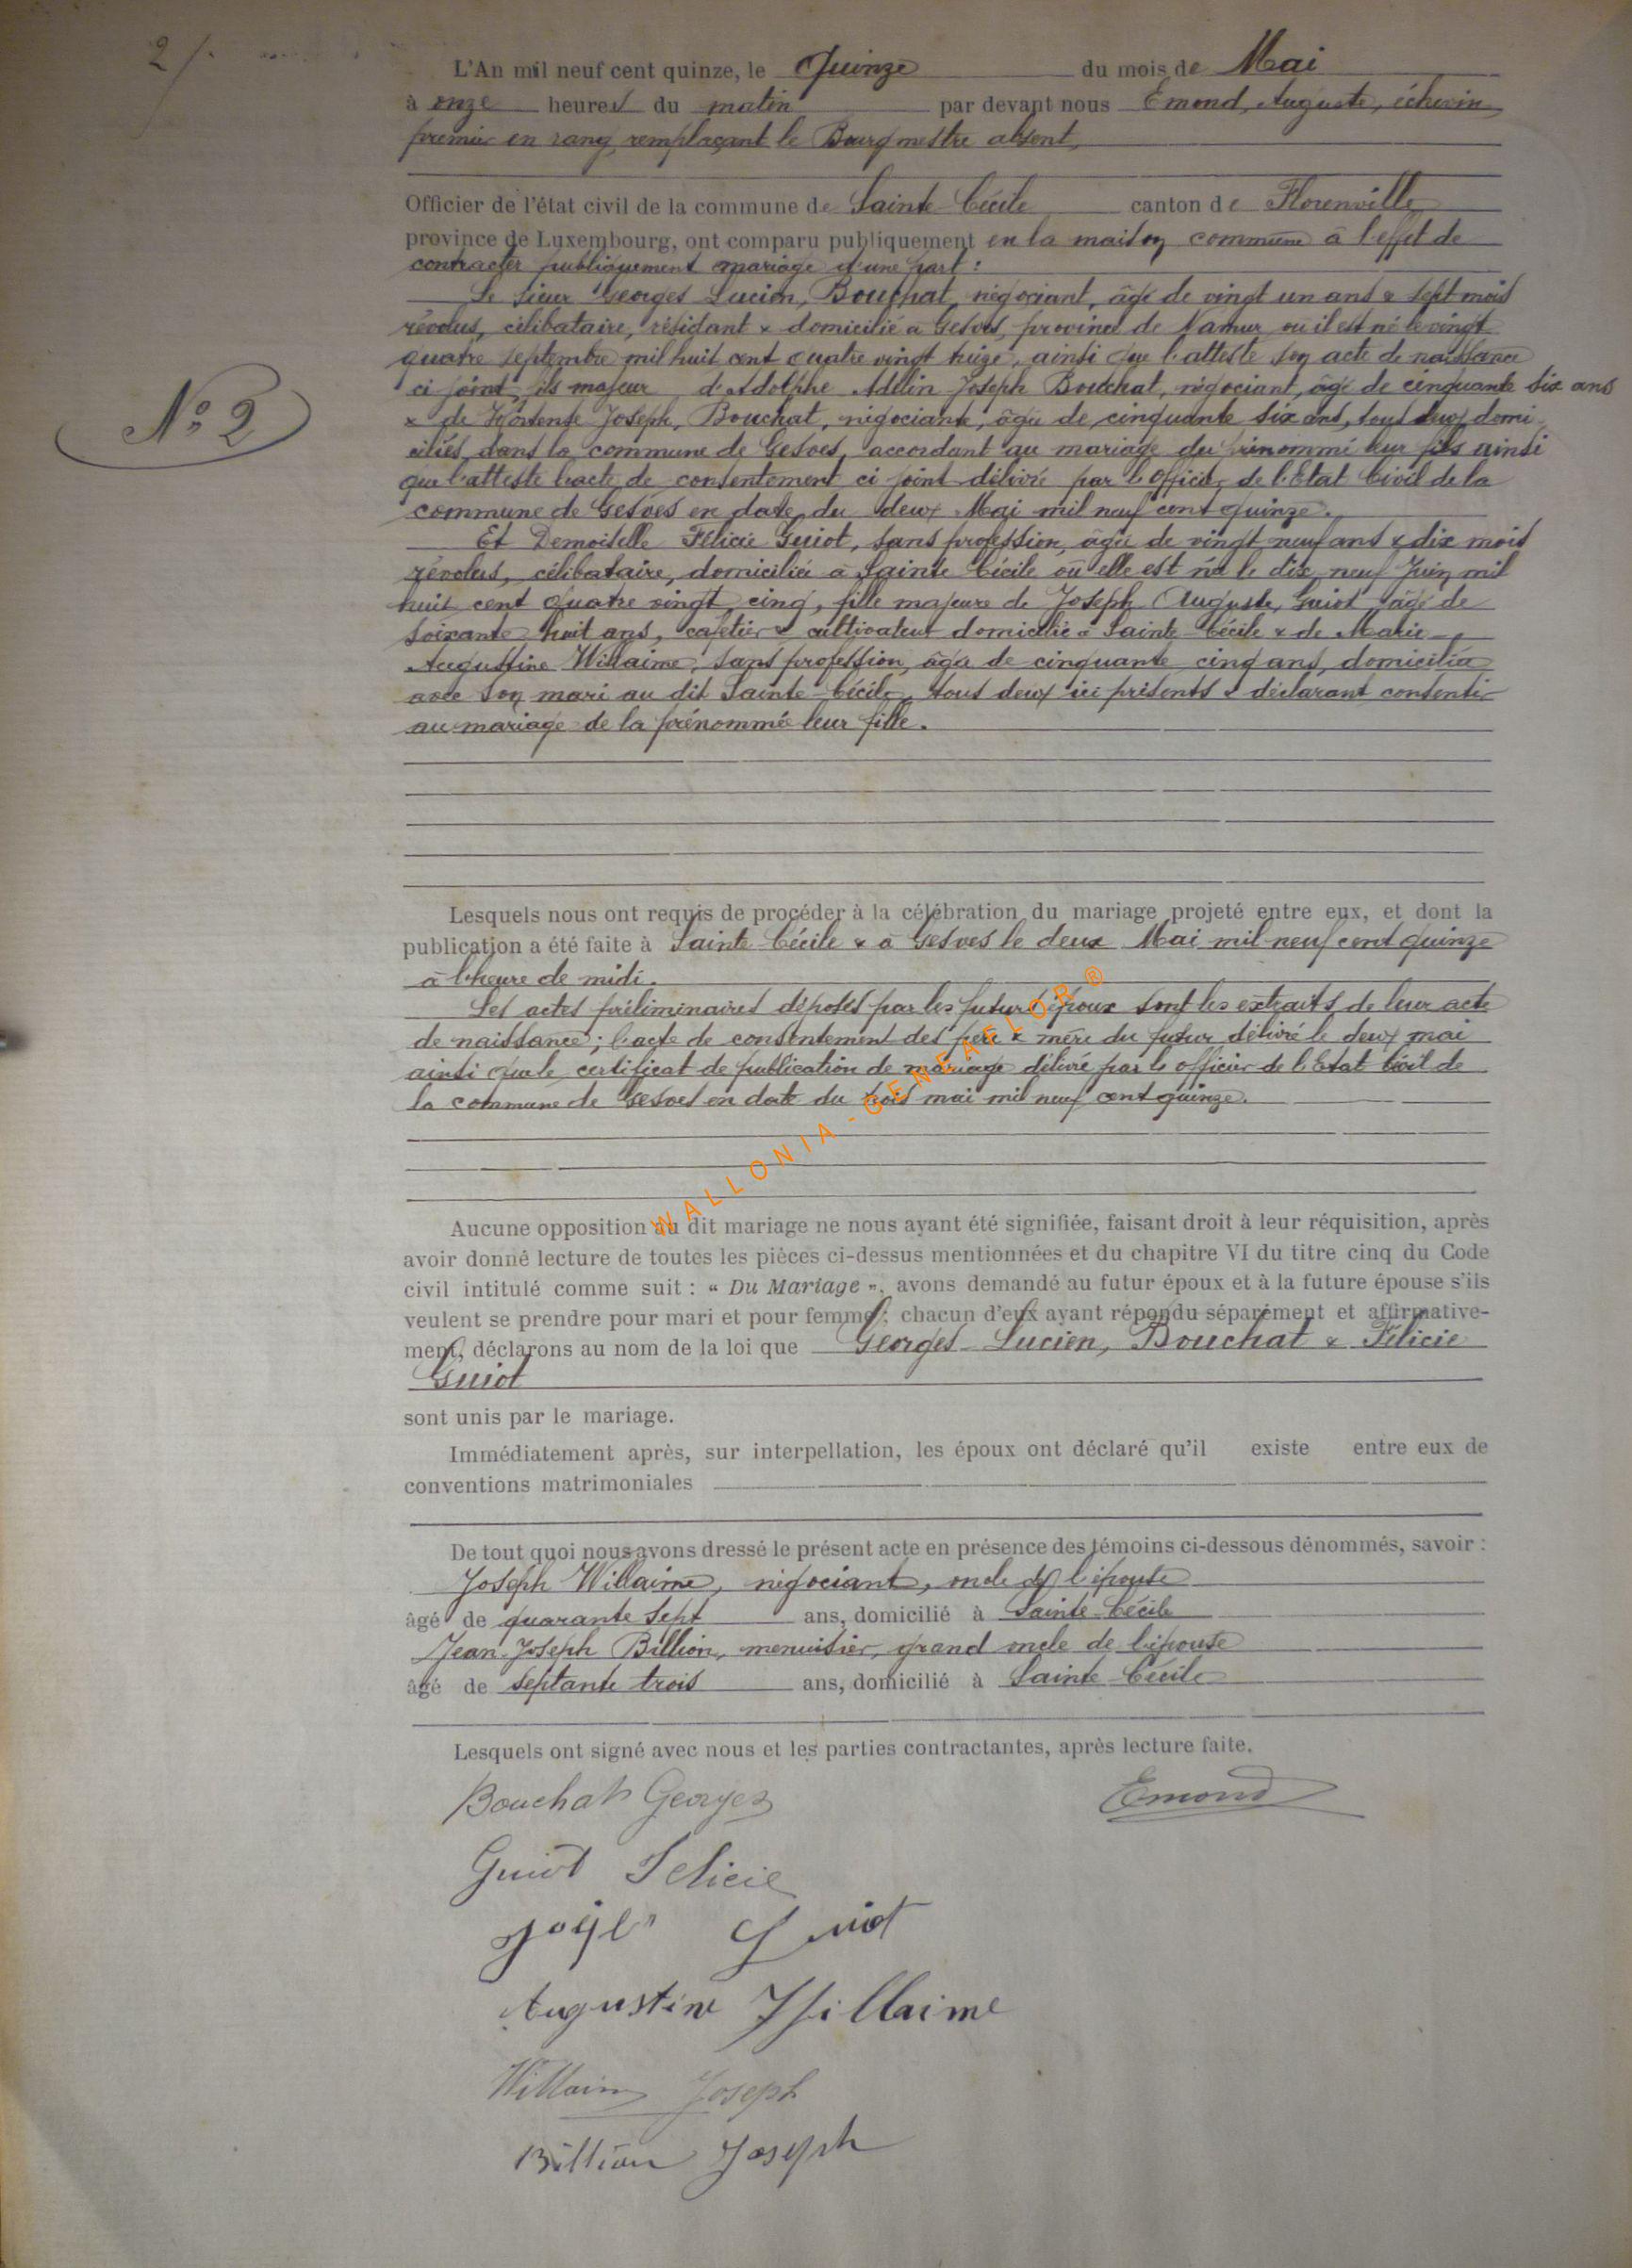 2/.
L'An mil neuf cent quinze, le Quinze du mois de Mai
à onze heures du matin par devant nous Emond, Auguste, échevin
premier en rang, remplaçant le Bourgmestre absent,
Officier de l'état civil de la commune de Sainte-Cécile canton de Florenville
province de Luxembourg, ont comparu publiquement en la maison commune à l'effet de
contracter publiquement mariage d'une part :
Le sieur Georges Lucien, Bouchat, négociant, âgé de vingt un ans & sept mois
révolus, célibataire, résidant & domicilié à Gesves, province de Namur où il est né le vingt
quatre septembre mil huit cent quatre vingt treize, ainsi que l'atteste son acte de naissance
ci joint, fils majeur d'Adolphe Adelin Joseph Bouchat, négociant, âgé de cinquante six ans
N° 2
& de Hortense Joseph, Bouchat, négociante, âgée de cinquante six ans, tous deux domi
ciliés dans la commune de Gesves, accordant au mariage du prénommé leur fils ainsi
que l'atteste l'acte de consentement ci joint délivré par l'officier de l'Etat Civil de la
commune de Gesves en date du deux Mai mil neuf cent quinze.
Et Demoiselle Félicie Guiot, sans profession, âgée de vingt neuf ans & dix mois
révolus, célibataire, domiciliée à Sainte Cécile où elle est née le dix neuf Juin mil
huit cent quatre vingt cinq, fille majeure de Joseph Auguste, Guiot âgé de
soixante huit ans, cafetier & cultivateur domicilié à Sainte-Cécile & de Marie
Augustine Willaime, sans profession, âgée de cinquante cinq ans, domiciliée
avec son mari au dit Sainte-Cécile, tous deux ici présents & déclarant consentir
au mariage de la prénommée leur fille.
Lesquels nous ont requis de procéder à la célébration du mariage projeté entre eux, et dont la
publication a été faite à Sainte Cécile & à Gesves le deux Mai mil neuf cent quinze
à l'heure de midi.
Les actes préliminaires déposés par les futurs époux sont les extraits de leur acte
de naissance ; l'acte de consentement des père & mère du futur délivré le deux mai
ainsi que le certificat de publication de mariage délivré par le officier de l'Etat Civil de
la commune de Gesves en date du trois mai mil neuf cent quinze.
WALLONIA-GENEAELOR®
Aucune opposition au dit mariage ne nous ayant été signifiée, faisant droit à leur réquisition, après
avoir donné lecture de toutes les pièces ci-dessus mentionnées et du chapitre VI du titre cinq du Code
civil intitulé comme suit : « Du Mariage », avons demandé au futur époux et à la future épouse s'ils
veulent se prendre pour mari et pour femme ; chacun d'eux ayant répondu séparément et affirmative-
ment, déclarons au nom de la loi que Georges Lucien, Bouchat & Félicie
Guiot
sont unis par le mariage.
Immédiatement après, sur interpellation, les époux ont déclaré qu'il existe entre eux de
conventions matrimoniales
De tout quoi nous avons dressé le présent acte en présence des témoins ci-dessous dénommés, savoir :
Joseph Willaime, négociant, oncle de l'épouse
âgé de quarante sept ans, domicilié à Sainte-Cécile
Jean-Joseph Billion, menuisier, grand oncle de l'épouse
âgé de septante trois ans, domicilié à Sainte-Cécile
Lesquels ont signé avec nous et les parties contractantes, après lecture faite.
Bouchat Georges Emond
Guiot Félicie
Guiot
Augustine Willaime
Willaime Joseph
Billion Joseph